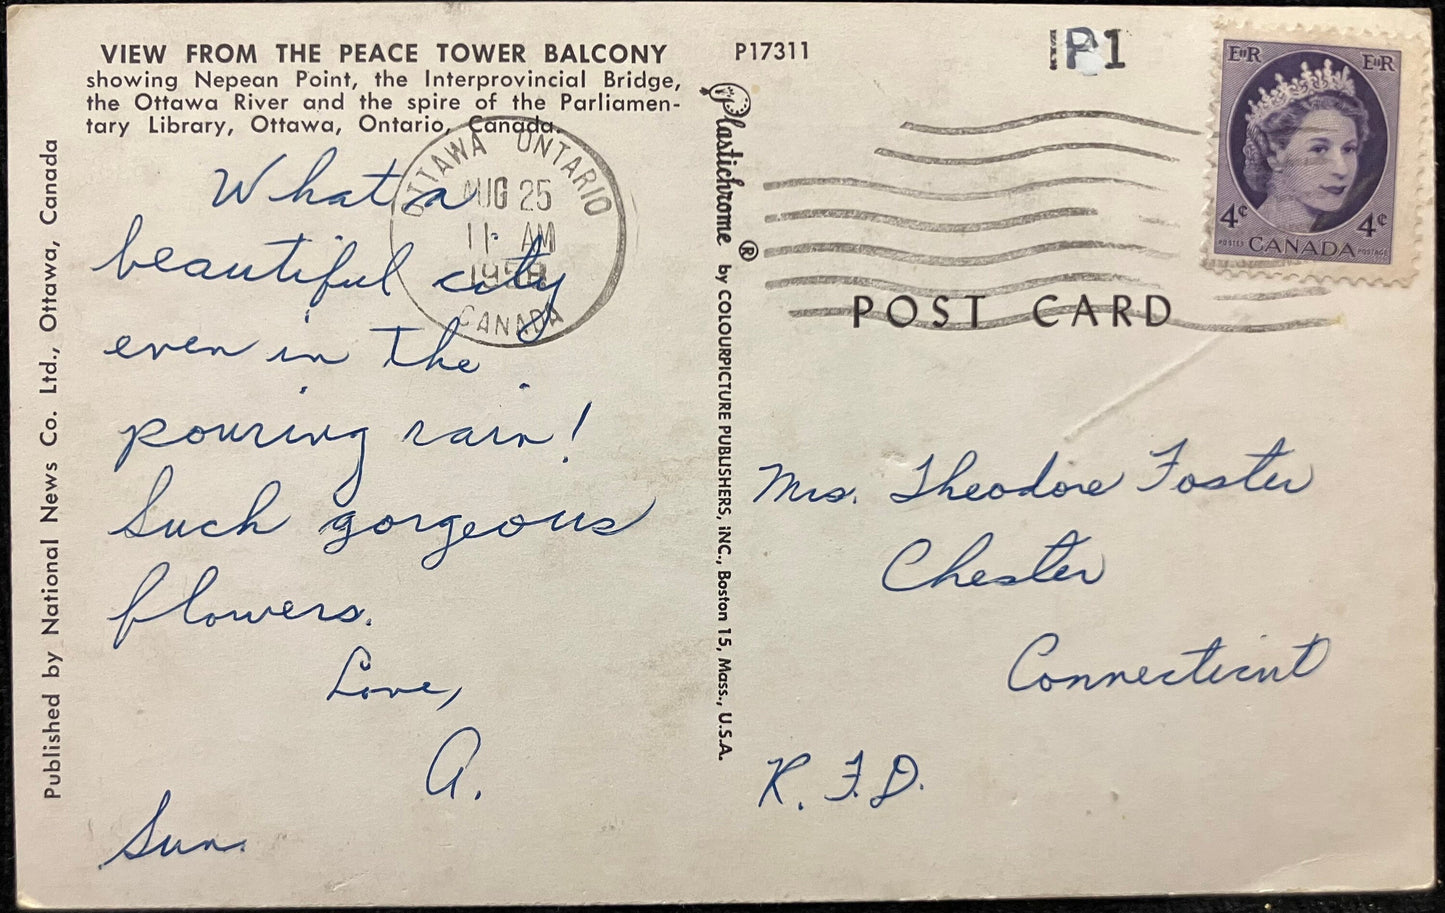 VIEW FROM THE PEACE TOWER BALCONY
showing Nepean Point, the Interprovincial Bridge,
the Ottawa River and the spire of the Parliamen-
tary Library, Ottawa, Ontario, Canada.
What a
beautiful city
even in the
pouring rain!
Such gorgeous
flowers.
Love,
A.
Sun.
Published by National News Co. Ltd., Ottawa, Canada
OTTAWA ONTARIO
AUG 25
11 AM
CANADA
Plastichrome ® by COLOURPICTURE PUBLISHERS, INC., Boston 15, Mass., U.S.A.
P17311
1P1
EIIR EIIR
4¢ 4¢
POSTES CANADA POSTAGE
POST CARD
Mrs. Theodore Foster
Chester
Connecticut
R.F.D.